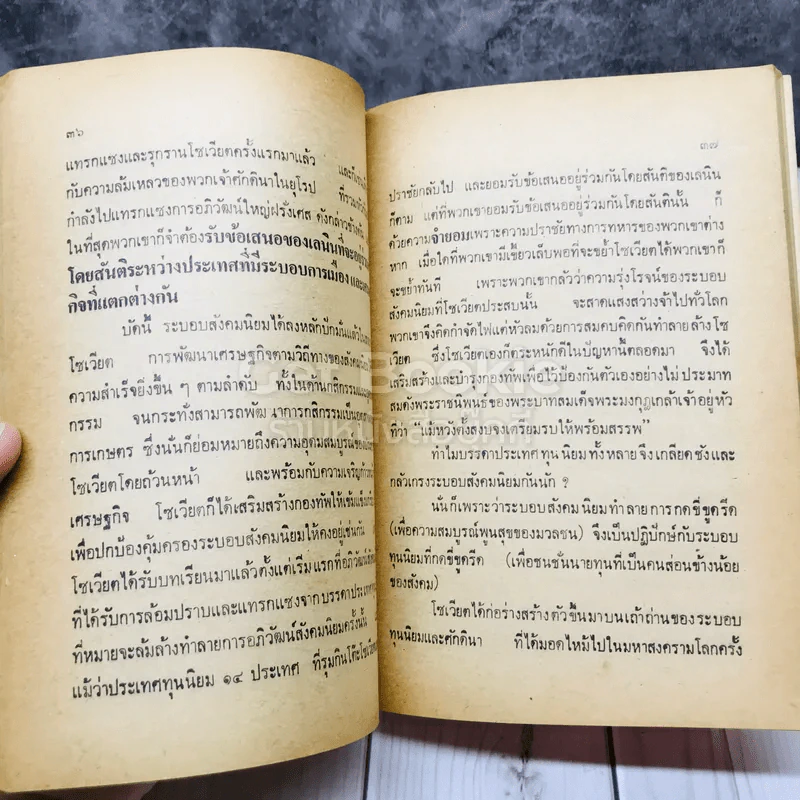 ๓๖
แทรกแซงและรุกรานโซเวียตครั้งแรกมาแล้ว และก็เช่น
กับความล้มเหลวของพวกเจ้าศักดินาในยุโรป ที่รวม
กำลังไปแทรกแซงการอภิวัฒน์ใหญ่ฝรั่งเศส ดังกล่าวข้าง
ในที่สุดพวกเขาก็จำต้องรับข้อเสนอของเลนินที่จะอยู่
โดยสันติระหว่างประเทศที่มีระบอบการเมือง และ
กิจที่แตกต่างกัน
บัดนี้ ระบอบสังคมนิยมได้ลงหลักปักมั่นแล้ว
โซเวียต การพัฒนาเศรษฐกิจตามวิถีทางของสังคม
ความสำเร็จยิ่งขึ้น ๆ ตามลำดับ ทั้งในด้านกสิกรรมและ
กรรม จนกระทั่งสามารถพัฒนาการกสิกรรมเป็น
การเกษตร ซึ่งนั่นก็ย่อมหมายถึงความอุดมสมบูรณ์ของ
โซเวียตโดยถ้วนหน้า และพร้อมกับความเจริญก้าว
เศรษฐกิจ โซเวียตก็ได้เสริมสร้างกองทัพให้เข้มแข็ง
เพื่อปกป้องคุ้มครองระบอบสังคมนิยมให้คงอยู่เช่นกัน
โซเวียตได้รับบทเรียนมาแล้วตั้งแต่เริ่มแรกที่อภิวัฒน์
ที่ได้รับการล้อมปราบและแทรกแซงจากบรรดาประเทศ
ที่หมายจะล้มล้างทำลายการอภิวัฒน์สังคมนิยมครั้งนั้น
แม้ว่าประเทศทุนนิยม ๑๔ ประเทศ ที่รุมกินโต๊ะโซเวียต
๓๗
ปราชัยกลับไป และยอมรับข้อเสนออยู่ร่วมกันโดยสันติของเลนิน
ก็ตาม แต่ที่พวกเขายอมรับข้อเสนออยู่ร่วมกันโดยสันตินั้น ก็
ด้วยความจำยอมเพราะความปราชัยทางการทหารของพวกเขาต่าง
หาก เมื่อใดที่พวกเขามีเขี้ยวเล็บพอที่จะขย้ำโซเวียตได้พวกเขาก็
จะขย้ำทันที เพราะพวกเขากลัวว่าความรุ่งโรจน์ของระบอบ
สังคมนิยมที่โซเวียตประสบนั้น จะสาดแสงสว่างจ้าไปทั่วโลก
พวกเขาจึงคิดกำจัดไฟแต่หัวลมด้วยการสมคบคิดกันทำลายล้างโซ
เวียต ซึ่งโซเวียตเองก็ตระหนักดีในปัญหานี้ตลอดมา จึงได้
เสริมสร้างและบำรุงกองทัพเพื่อไว้ป้องกันตัวเองอย่างไม่ประมาท
สมดังพระราชนิพนธ์ของพระบาทสมเด็จพระมงกุฎเกล้าเจ้าอยู่หัว
ที่ว่า “แม้หวังตั้งสงบจงเตรียมรบให้พร้อมสรรพ”
ทำไมบรรดาประเทศทุนนิยมทั้งหลายจึงเกลียดชังและ
กลัวเกรงระบอบสังคมนิยมกันนัก ?
นั่นก็เพราะว่าระบอบสังคมนิยมทำลายการกดขี่ขูดรีด
(เพื่อความสมบูรณ์พูนสุขของมวลชน) จึงเป็นปฏิปักษ์กับระบอบ
ทุนนิยมที่กดขี่ขูดรีด (เพื่อชนชั้นนายทุนที่เป็นคนส่วนข้างน้อย
ของสังคม)
โซเวียตได้ก่อร่างสร้างตัวขึ้นมาบนเถ้าถ่านของระบอบ
ทุนนิยมและศักดินา ที่ได้มอดไหม้ไปในมหาสงครามโลกครั้ง